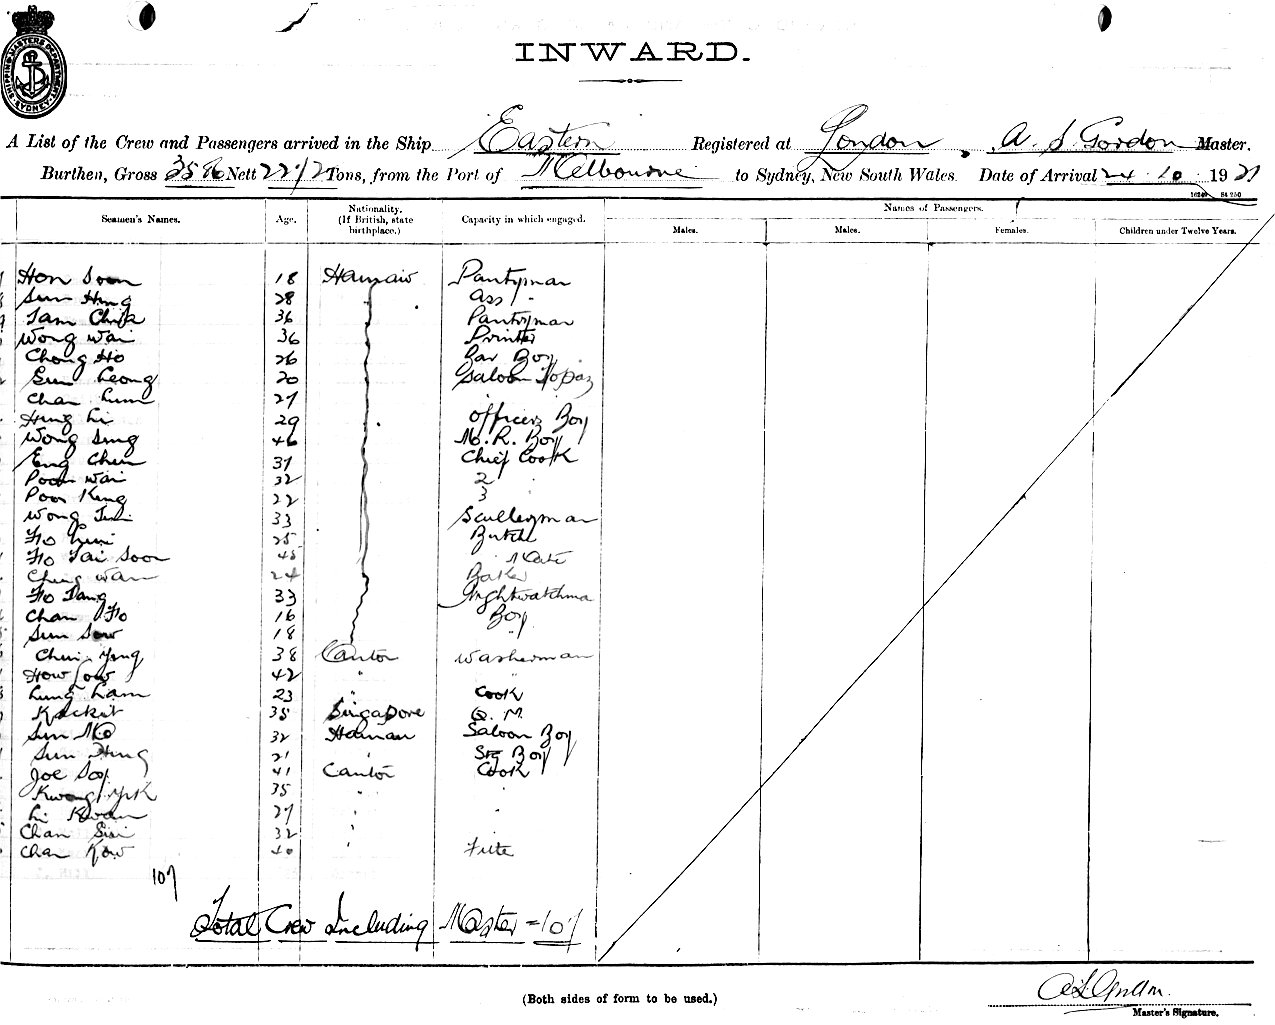 SHIPPING MASTERS DEPARTMENT SYDNEY
INWARD.
A List of the Crew and Passengers arrived in the Ship Eastern Registered at London, A. S. Gordon Master.
Burthen, Gross 3586 Nett 2212 Tons, from the Port of Melbourne to Sydney, New South Wales. Date of Arrival 24 10 1921
Seamen's Names. Age. Nationality. (If British, state birthplace.) Capacity in which engaged. Names of Passengers.
Males. Males. Females. Children under Twelve Years.
Hon Soon 18 Pantryman
Sun Hing 28 Ass "
Tam Chik 36 Pantryman
Wong Wai 36 Printer
Chong Ho 26 Bar Boy
Sun Leong 20 Saloon Topaz
Chan Lum 27 "
Hung Li 29 Officers Boy
Wong Sing 46 M. R. Boy
Eng Chin 37 Chief Cook
Poon Wai 32 2 "
Poon Keng 22 3 "
Wong 33 Sculleryman
Ho 25
Ho Tai Soon 45 " Mate
Ching Wan 24 Baker
Ho Tang 33 Nightwatchma
Chan Ho 16 Boy
Sun Sow 18 "
Chui Yong 38 Canton Washerman
How Sow 42 " "
Lung Lam 23 " Cook
35 Singapore Q. M.
Sun Mo 32 Hainan Saloon Boy
Sun Hing 21 " Stg Boy
Joe Soy 41 Canton Cook
Kwong Yok 35 " "
Li Kwan 27 " "
Chan 32 " "
Chan Kow 40 "
107
Total Crew Including Master = 107
(Both sides of form to be used.)
Master's Signature.